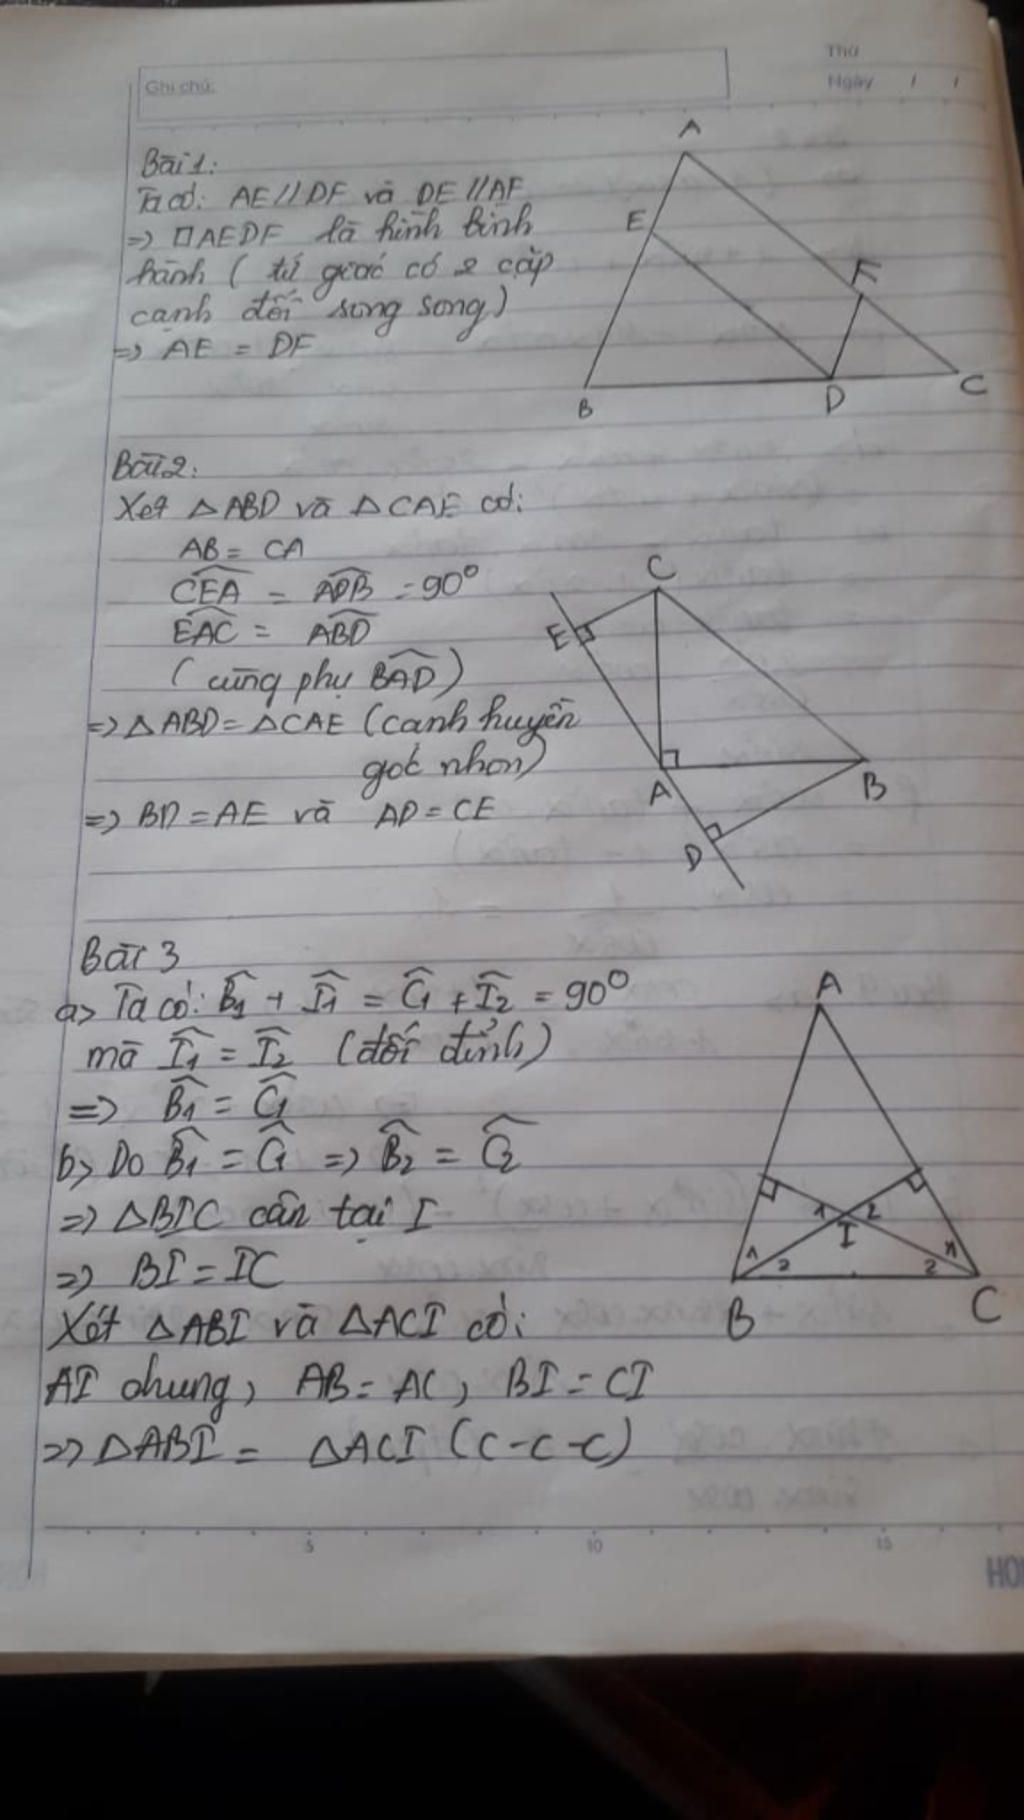 Ghi chú:
Thứ
Ngày / /
Bài 1:
Ta có: AE//DF và DE//AF
=> □AEDF là hình bình
hành ( tứ giác có 2 cặp
cạnh đối song song)
=> AE = DF
A
E
F
B
D
C
Bài 2:
Xét △ABD và △CAE có:
AB = CA
\widehat{CEA} = \widehat{ADB} = 90°
\widehat{EAC} = \widehat{ABD}
( cùng phụ \widehat{BAD} )
=> △ABD = △CAE (cạnh huyền
góc nhọn)
=> BD = AE và AD = CE
C
E
A
B
D
Bài 3
a> Ta có: \widehat{B_1} + \widehat{I_1} = \widehat{C_1} + \widehat{I_2} = 90°
mà \widehat{I_1} = \widehat{I_2} (đối đỉnh)
=> \widehat{B_1} = \widehat{C_1}
b> Do \widehat{B_1} = \widehat{C_1} => \widehat{B_2} = \widehat{C_2}
=> △BIC cân tại I
=> BI = IC
Xét △ABI và △ACI có:
AI chung, AB = AC, BI = CI
=> △ABI = △ACI (c-c-c)
A
1 2
I
1 2
2 1
B
C
5 10 15
HON